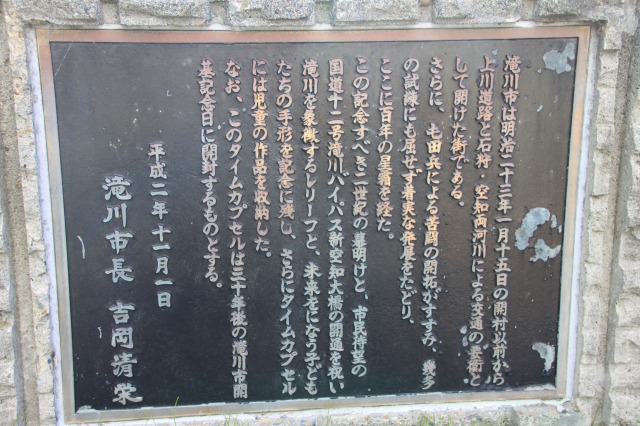 滝川市は明治二十三年一月十五日の開村以前から
上川道路と石狩・空知両河川による交通の要衝と
して開けた街である。
さらに、屯田兵による苦闘の開拓がすすみ、幾多
の試練にも屈せず着実な発展をたどり、
ここに百年の星霜を経た。
この記念すべき二世紀の幕明けと、市民待望の
国道十二号滝川バイパス新空知大橋の開通を祝い
滝川を象徴するレリーフと、未来をになう子ども
たちの手形を記念に残し、さらにタイムカプセル
には児童の作品を収納した。
なお、このタイムカプセルは三十年後の滝川市開
基記念日に開封するものとする。
平成二年十一月一日
滝川市長 吉岡清栄